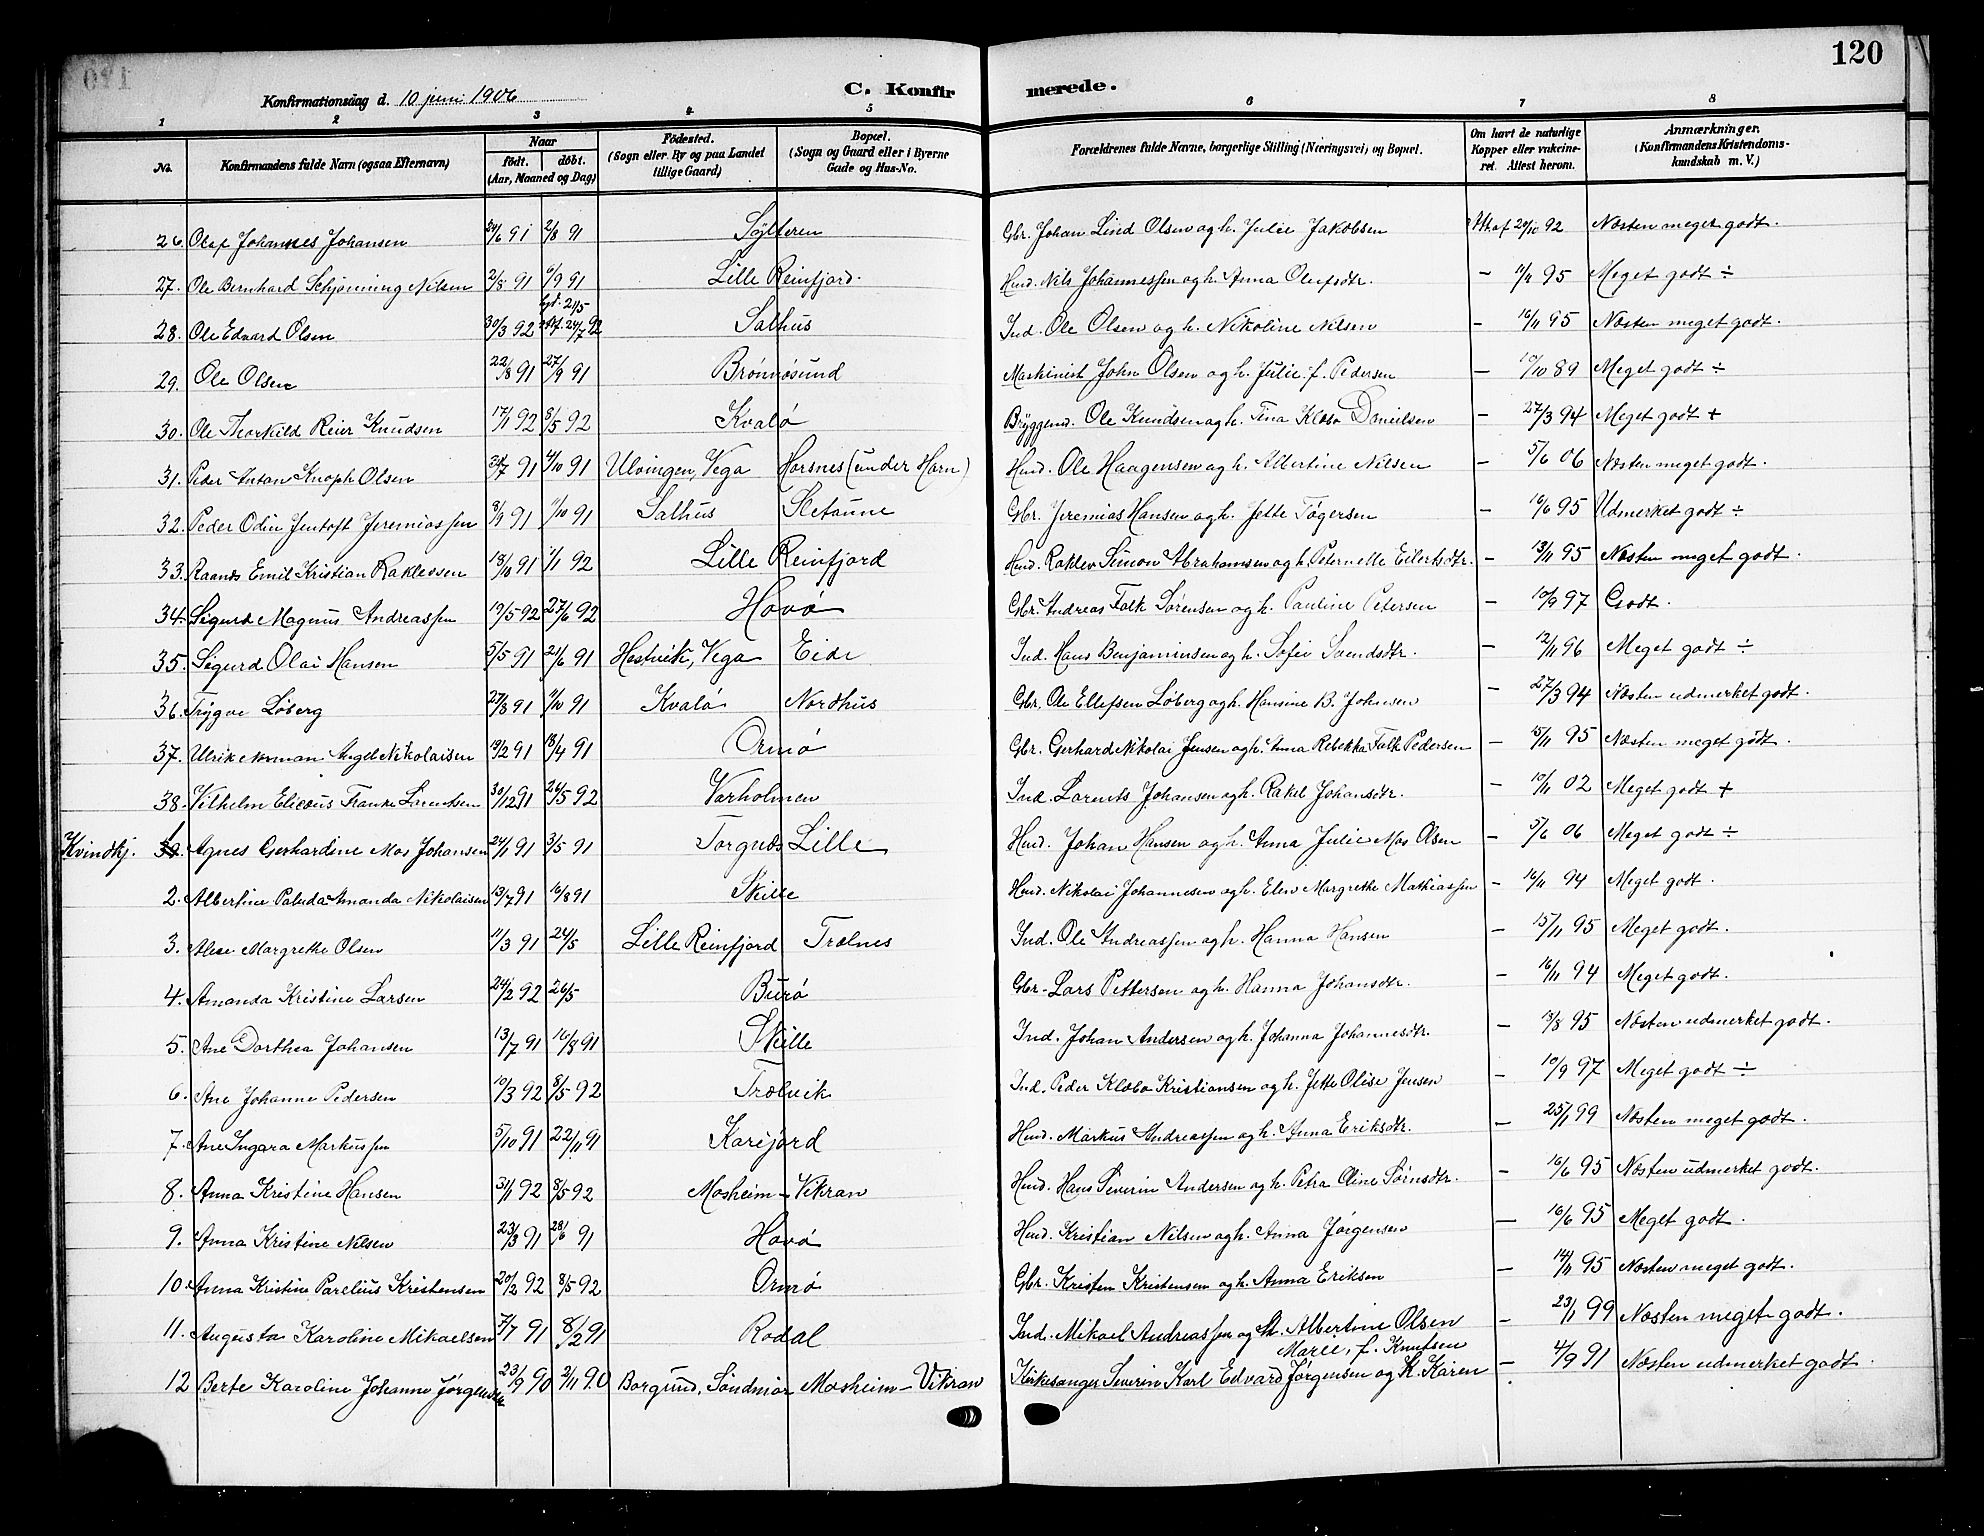 120
Konfirmationsdag d. 10 juni 1906
C. Konfirmerede.
1 2 3 4 5 6 7 8
No. Konfirmandens fulde Navn (ogsaa Efternavn) Naar født. døbt. (Aar, Maaned og Dag) Fødested. (Sogn eller By og paa Landet tillige Gaard) Bopæl. (Sogn og Gaard eller i Byerne Gade og Hus-No. Forældrenes fulde Navne, borgerlige Stilling (Næringsvei) og Bopæl. Om havt de naturlige Kopper eller vakcineret. Attest herom. Anmærkninger. (Konfirmandens Kristendomskundskab m. V.)
26. Olaf Johannes Johansen /6 91 2/8 91 Sylteren Gbr. Johan Lind Olsen og h. Julie Jakobsen 20/10 92 Næsten meget godt.
27. Ole Bernhard Schjønning Nilsen 2/8 91 6/9 91 Lille Reinfjord. Husm. Nils Johannessen og h. Anna Olufsdtr. – 95 Meget godt ÷
28. Ole Edvard Olsen 30/3 92 hjd. 21/5 24/7 92 Salhus Ind. Ole Olsen og h. Nikoline Nilsen – 16/11 95 Næsten meget godt.
29. Ole Olsen 22/8 91 27/9 91 Brønnøsund Maskinist John Olsen og h. Julie f. Pedersen – 10/10 89 Meget godt ÷
30. Ole Thorkild Reier Knudsen 17/1 92 8/5 92 Kvalø Byggend. Ole Knudsen og h. Tina Klæbo Danielsen – 27/3 94 Meget godt +
31. Peder Anton Knoph Olsen /7 91 4/10 91 Ulvingen, Vega Horsnes (under Horn) Husd. Ole Haagensen og h. Albertine Nilsen – 5/6 06 Næsten meget godt.
32. Peder Odin Jentoft Jeremiassen 8/9 91 11/10 91 Salhus Sletaune Gbr. Jeremias Hansen og h. Jette Tøgersen – 16/6 95 Udmerket godt ÷
33. Raands Emil Kristian Raklevsen 18/10 91 1/1 92 Lille Reinfjord Husd. Raklev Simon Abrahamsen og h. Peternelle Eilertsdtr. – 13/11 95 Næsten meget godt.
34. Sigurd Magnus Andreassen 19/5 92 27/6 92 Havø Gbr. Andreas Falk Sørensen og h. Pauline Petersen – 10/9 97 Godt.
35. Sigurd Olai Hansen 5/5 91 21/6 91 Hestvik, Vega Eide Ind. Hans Benjaminsen og h. Sofie Svendsdtr. – 12/11 96 Meget godt ÷
36. Trygve Løberg 27/8 91 11/10 91 Kvalø Nordhus Gbr. Ole Ellefsen Løberg og h. Hansine B. Johnsen – 27/3 94 Næsten udmerket godt.
37. Ulrik Norman Angel Nikolaisen 19/2 91 18/4 91 Ormø Gbr. Gerhard Nikolai Jensen og h. Anna Rebekka Falk Pedersen – 15/11 95 Næsten meget godt.
38. Vilhelm Elieæus Franke Larentsen 30/12 91 26/5 92 Varholmen Ind. Lorents Johansen og h. Rakel Johansdtr. – 10/11 02 Meget godt +
Kvindkj. 1. Agnes Gerhardine Mos Johansen 24/1 91 3/5 91 Torgnes Lille Husd. Johan Hansen og h. Anna Julie Mos Olsen – 5/6 06 Meget godt ÷
2. Albertine Paluda Amanda Nikolaisen 13/7 91 16/8 91 Skille Husd. Nikolai Johannesen og h. Elen Margrethe Mathiassen – 16/11 94 Meget godt.
3. Alese Margrethe Olsen 11/3 91 24/5 Lille Reinfjord Trælnes Ind. Ole Andreassen og h. Hanna Hansen – 15/11 95 Meget godt.
4. Amanda Kristine Larsen 24/2 92 26/5 Burø Gbr. Lars Pettersen og h. Hanna Johansdtr. – 16/11 94 Meget godt.
5. Ane Dorthea Johansen 13/7 91 16/8 91 Skille Ind. Johan Andersen og h. Johanna Johannesdtr. – 13/8 95 Næsten udmerket godt.
6. Ane Johanne Pedersen 10/3 92 8/5 92 Trælvik Ind. Peder Klæbo Kristiansen og h. Jette Olise Jensen – 10/9 97 Meget godt ÷
7. Ane Ingara Markussen 5/10 91 22/11 91 Karijord Husd. Markus Andreassen og h. Anna Eriksdtr. – 25/1 99 Næsten meget godt.
8. Anna Kristine Hansen 31/1 92 8/5 92 Mosheim – Vikran Husd. Hans Severin Andersen og h. Petra Oline Sørnsdtr. – 16/6 95 Næsten udmerket godt.
9. Anna Kristine Nilsen 23/3 91 28/6 91 Havø Husd. Kristian Nilsen og h. Anna Jørgensen – 16/6 95 Meget godt.
10. Anna Kristine Parelius Kristensen 20/2 92 8/5 92 Ormø Gbr. Kristen Kristensen og h. Anna Eriksen – 14/11 95 Næsten meget godt.
11. Augusta Karoline Mikaelsen 7/7 91 8/2 91 Rodal Ind. Mikael Andreassen og H. Albertine Olsen – 23/1 99 Næsten meget godt.
12 Berte Karoline Johanne Jørgensen 23/9 90 2/11 90 Borgund, Søndmør Mosheim – Vikran Kirkesanger Severin Karl Edvard Jørgensen og K. Karen Marie, f. Knutsen – 4/9 91 Næsten udmerket godt.